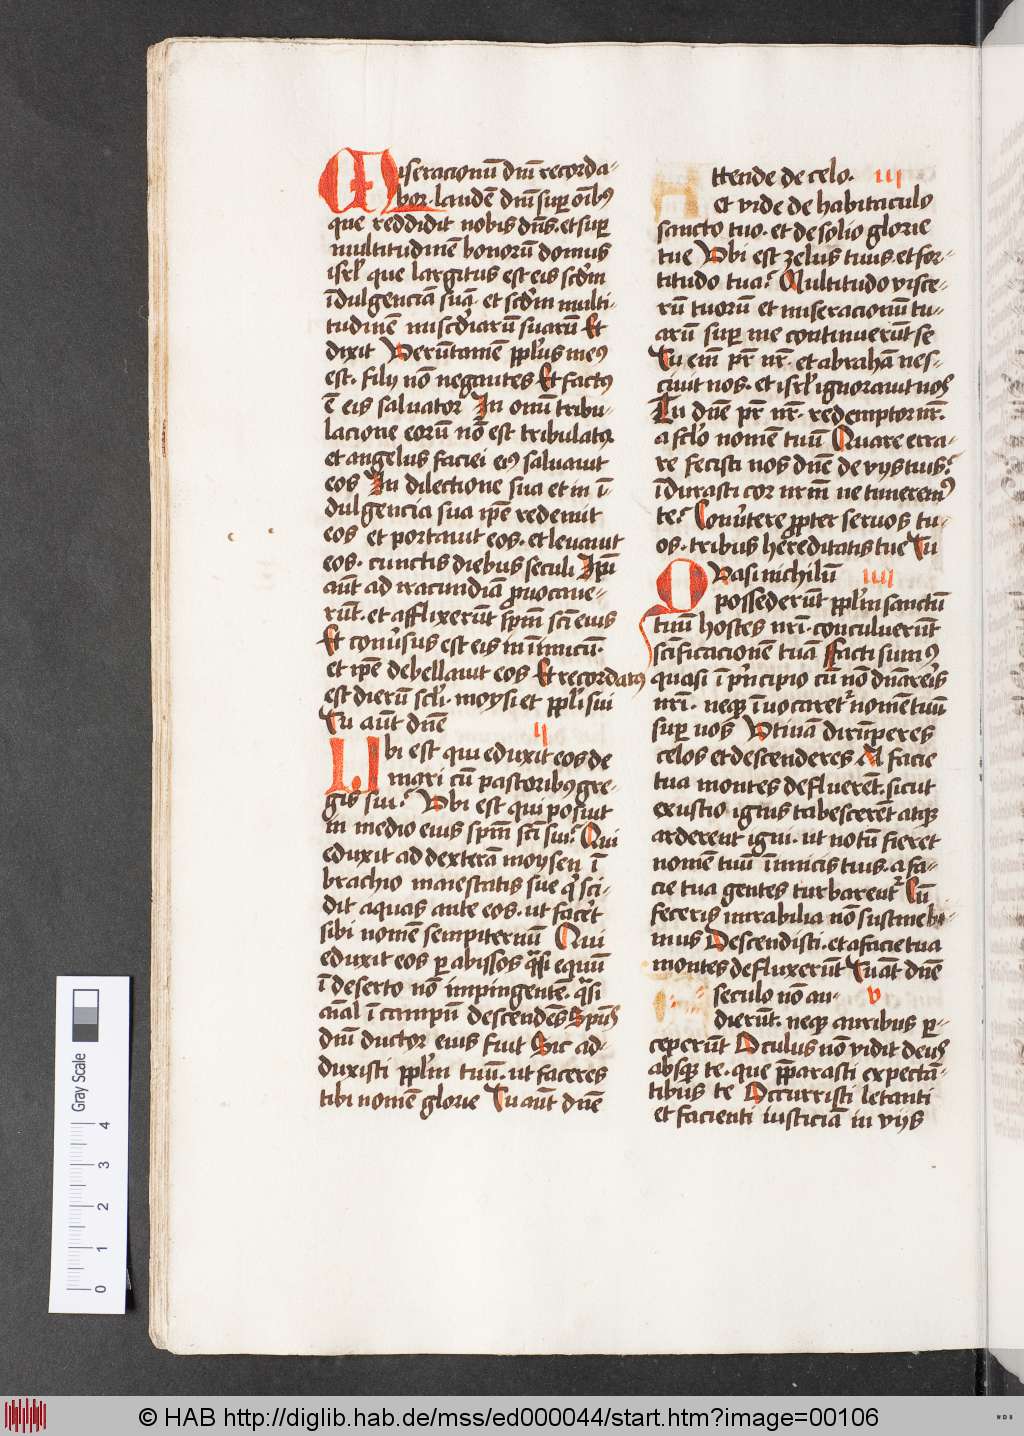 Miseracionū dñi recorda-
bor. laudē dñi sup̱ oībꝫ
que reddidit nobis dñs. et sup̱
multitudinē bonorū domus
isrl̓ que largitus est eis scd̓m
īdulgenciā suā. et scd̓m multi-
tudinē misc̓diarū suarū Et
dixit Verūtamē ppl̓us meꝰ
est. filij nō negantes Et factꝰ
ē eis saluator In omī tribu-
lacione eorū nō est tribulatꝰ
et angelus faciei eiꝰ saluauit
eos In dilectione sua et in ī-
dulgencia sua ip̄e redemit
eos et portauit eos. et leuauit
eos. cunctis diebus seculi Ip̄i
aūt ad iracundiā ꝓuocaue-
rūt. et afflixerūt sp̄m sc̄i eius
Et conuͤsus est eis in inimicū.
et ip̄e debellauit eos Et recordatus
est dierū scl̓i. moysi et ppl̓i sui
Tu aūt dn̄e
Ubi est qui eduxit eos de ij
mari cū pastoribꝰ gre-
gis sui? Vbi est qui posuit
in medio eius sp̄m sc̄i sui? Qui
eduxit ad dexterā moysen ī
brachio maiestatis sue q̓ sci-
dit aquas ante eos. ut fac̓et
sibi nomē sempiternū Qui
eduxit eos p̱ abissos q̄si equū
ī deserto nō impingentē. q̄si
aīal ī campū descendēs Spūs
dn̄i ductor eius fuit Sic ad-
duxisti ppl̓m tuū. ut faceres
tibi nomē glorie Tu aūt dn̄e
Attende de celo. iij
et vide de habitaculo
sancto tuo. et de solio glorie
tue Vbi est zelus tuus. et for-
titudo tua? Multitudo visce-
rū tuorū et miseracionū tu-
arū sup̱ me continuerūt se
Tu em̄ pr̄ nr̄. et abrahā nes-
ciuit nos. et isrl̓ ignorauit nos
Tu dn̄e pr̄ nr̄. redemptor nr̄.
a scl̓o nomē tuū Quare erra-
re fecisti nos dn̄e de vijs tuis?
īdurasti cor nr̄m ne timeremꝰ
te? Conu̓tere ꝓpter seruos tu-
os. tribus hereditatis tue Tu
Quasi nichilū iiij
possederūt ppl̓m sanctū
tuū hostes nr̄i. conculcuerūt
sc̄ificacionē tuā Facti sumꝰ
quasi ī p̓ncipio cū nō dn̄areris
nr̄i. neqꝫ īuocaretᷣ nomē tuū
sup̱ nos Vtinā dirūperes
celos et descenderes A facie
tua montes defluerēt. sicut
exustio ignis tabescerēt atqꝫ
arderent igni. ut notū fieret
nomē tuū īimicis tuis. a fa-
cie tua gentes turbarentᷣ Cū
feceris mirabilia nō sustinebi-
mus Descendisti. et a facie tua
montes defluxerūt Tu aūt dn̄e
seculo nō au- v
dierūt. neqꝫ auribus p̱-
ceperūt Oculus nō vidit deus
absqꝫ te. que p̄parasti expectā-
tibus te Occurristi letanti
et facienti iusticiā in vijs
Gray Scale
0 1 2 3 4
© HAB http://diglib.hab.de/mss/ed000044/start.htm?image=00106
WDB